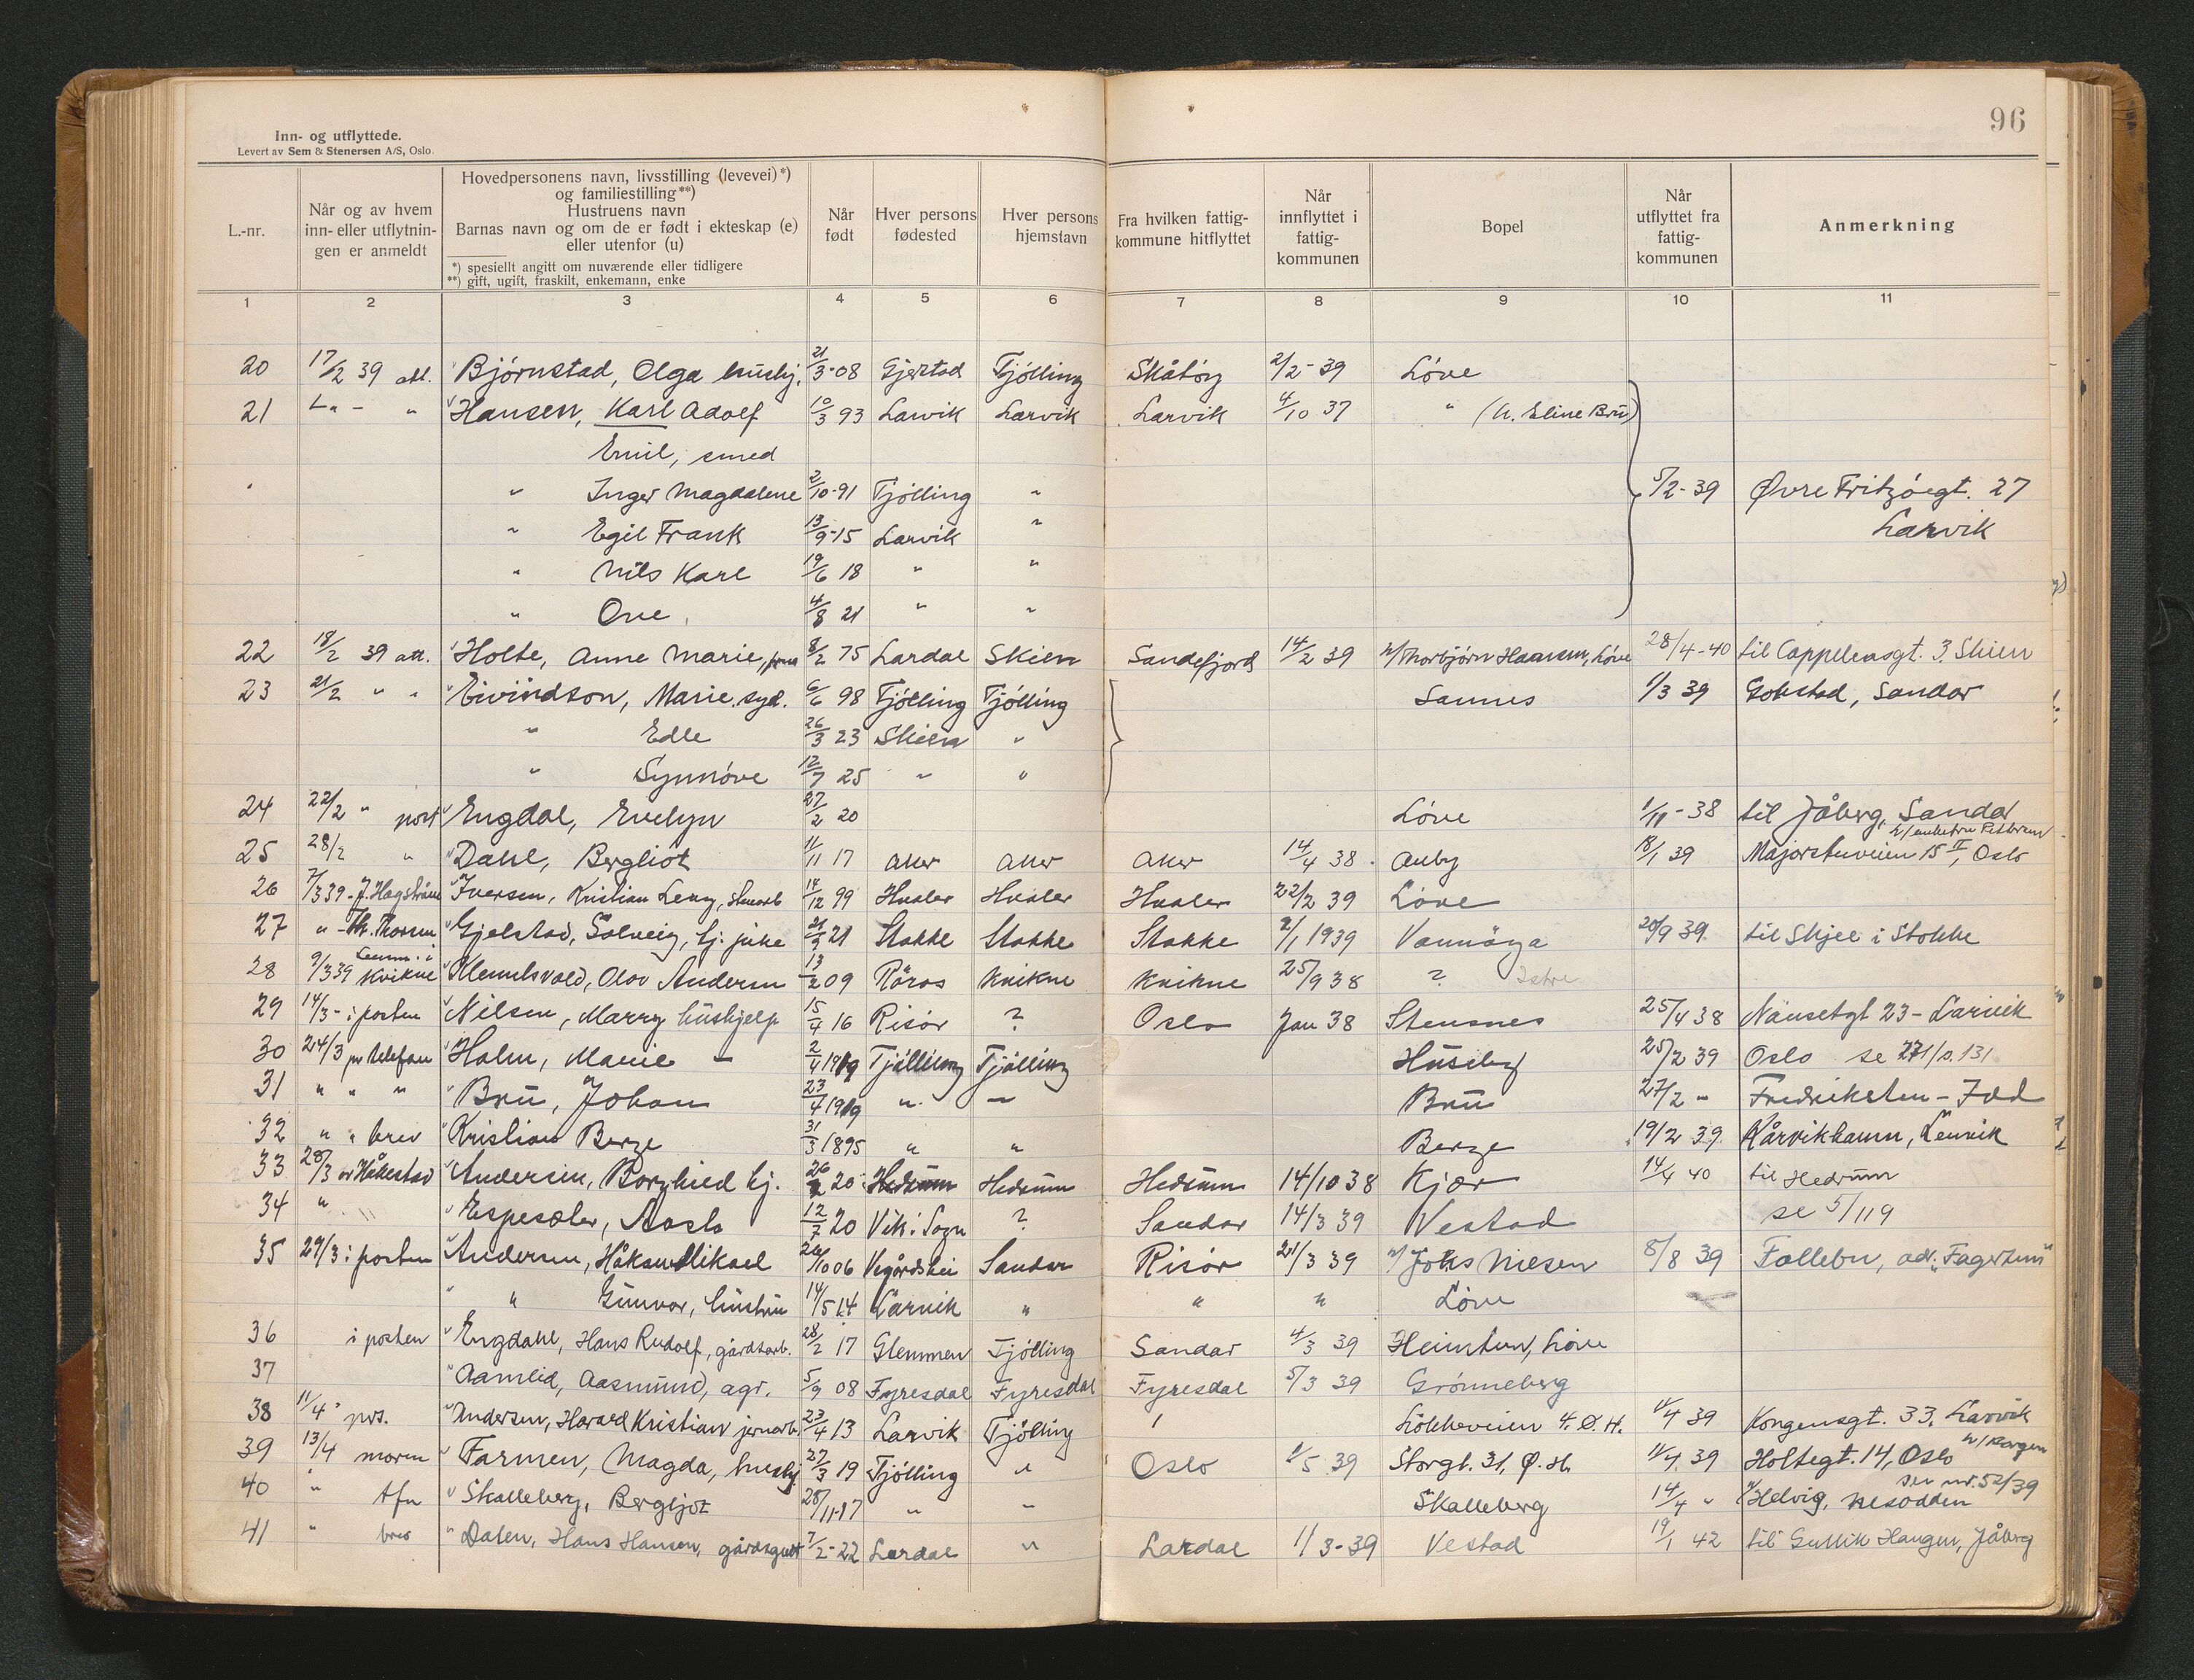 96
Inn- og utflyttede.
Levert av Sem & Stenersen A/S, Oslo.
L.-nr.
Når og av hvem inn- eller utflytnin-gen er anmeldt
Hovedpersonens navn, livsstilling (levevei)*) og familiestilling**) Hustruens navn Barnas navn og om de er født i ekteskap (e) eller utenfor (u)
*) spesiellt angitt om nuværende eller tidligere
**) gift, ugift, fraskilt, enkemann, enke
Når født
Hver persons fødested
Hver persons hjemstavn
Fra hvilken fattig-kommune hitflyttet
Når innflyttet i fattig-kommunen
Bopel
Når utflyttet fra fattig-kommunen
Anmerkning
1 2 3 4 5 6 7 8 9 10 11
20 17/2 39 att. Bjørnstad, Olga hushj. 21/3-08 Gjerstad Tjølling Skåtøy 2/2-39 Løve
21 " Hansen, Karl Adolf 10/3 93 Larvik Larvik Larvik 4/10 37 " (h. Eline Bru)
Emil, smed
" Inger Magdalene 2/10-91 Tjølling " 5/2-39 Øvre Fritzøegt. 27
" Egil Frank 13/9-15 Larvik " Larvik
" Nils Karl 19/6 18 " "
" Ove 4/8 21 " "
22 18/2 39 att. Holte, Anne Marie, 8/2 75 Lardal Skien Sandefjord 14/2 39 v/Thorbjørn Hansen, Løve 28/4-40 til Cappelensgt. 3, Skien
23 21/2 " " Eivindson, Marie. syd. 6/6 98 Tjølling Tjølling Sannes 1/3 39 Gokstad, Sandar
" Edle 26/3 23 Skien "
" Synnøve 12/7 25 " "
24 22/2 " post Engdal, Evelyn 27/2 20 Løve 1/11-38 til Jåberg, Sandar
25 28/2 " Dahl, Bergliot 11/11 17 Aker Aker Aker 14/4 38 Auby 18/1 39 Majorstuveien 15 II, Oslo
26 7/3 39 - J. Hagstrøm Iversen, Kristian Leny, 14/12 99 Hvaler Hvaler Hvaler 22/2 39 Løve
27 " - Th. Thorsen Gjelstad, Solveig, hj. pike 21/3 21 Stokke Stokke Stokke 2/1 1939 Vannöya 20/9 39 til Skjee i Stokke
28 9/3 39 Kvikne Olov Andersen 13/2 09 Röros Kvikne Kvikne 25/9 38 ? Istre
29 14/3 - i posten Nilsen, Marry hushjelp 15/4 16 Risör ? Oslo Jan 38 Stensnes 25/4 38 Nansetgt 23 - Larvik
30 24/3 pr telefon Holm, Marie - 2/4 1919 Tjølling Tjølling Huseby 25/2 39 Oslo se 271/s. 131
31 " " " Bru, Johan 23/4 1919 " - Bru 27/2 " Fredriksten - Idd
32 " " brev Kristian Berge 31/3 1895 " " Berge 19/2 39 Kårvikhamn, Lenvik
33 28/3 av Håkestad Andersen, Borghild hj. 26/2 20 Hedrum Hedrum Hedrum 14/10 38 Kjær 14/4 40 til Hedrum
34 " Espeseter, Aasta 12/7 20 Vik i Sogn ? Sandar 14/3 39 Vestad se 5/119
35 29/3 i posten Andersen, Håkon Mikael 26/10 06 Vegårdshei Sandar Risör 21/3 39 v/ Johs Niesen 8/8 39 Follebu, adr. "Fagertun"
" " Gunvor, hustru 14/5 14 Larvik " " " Løve
36 i posten Engdahl, Hans Rudolf, gårdsarb. 28/2 17 Glemmen Tjølling Sandar 4/3 39 Heimtun, Løve
37 Aamlid, Aasmund, agr. 5/9 08 Fyresdal Fyresdal Fyresdal 5/3 39 Grønneberg
38 11/4 " prs. Andersen, Harald Kristian jernarb. 23/4 13 Larvik Tjølling Løkkeveien 4. Ø. H. 1/4 39 Kongensgt. 33, Larvik
39 13/4 moren Farmen, Magda, hushj. 27/3 19 Tjølling " Oslo 1/5 39 Storgt. 31, Ø. H. 11/4 39 Holtegt. 14, Oslo
40 " tfn Skalleberg, Bergljot 28/11-17 " " Skalleberg 14/4 " v/ Helvig, Nesodden
se nr. 52/39
41 " brev Dalen, Hans Hansen, gårdsgutt 7/2-22 Lardal " Lardal 1/3-39 Vestad 19/1 42 til Gullik Haugen, Jåberg